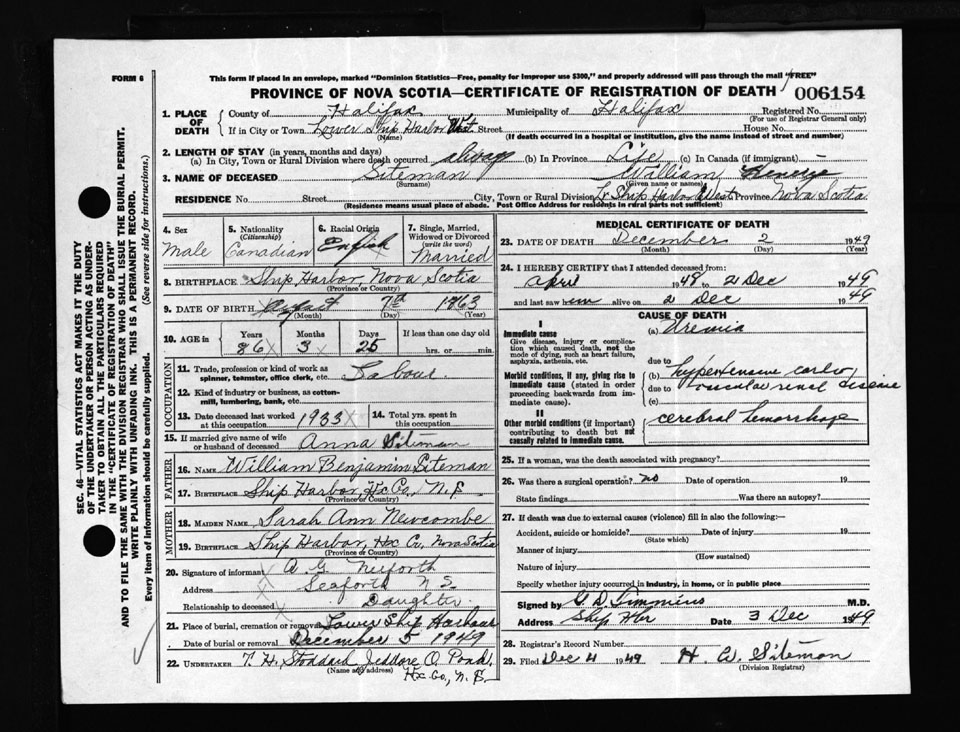 FORM 6
This form if placed in an envelope, marked "Dominion Statistics—Free, penalty for improper use $300," and properly addressed will pass through the mail "FREE"
PROVINCE OF NOVA SCOTIA—CERTIFICATE OF REGISTRATION OF DEATH 006154
1. PLACE OF DEATH County of Halifax Municipality of Halifax Registered No.
(For use of Registrar General only)
If in City or Town Lower Ship Harbor West Street House No.
(Name) (If death occurred in a hospital or institution, give the name instead of street and number)
2. LENGTH OF STAY (in years, months and days)
(a) In City, Town or Rural Division where death occurred always (b) In Province Life (c) In Canada (if immigrant)
3. NAME OF DECEASED Siteman William
(Surname) (Given name or names)
RESIDENCE No. Street City, Town or Rural Division Lr Ship Harbor West Province Nova Scotia
(Residence means usual place of abode. Post Office Address for residents in rural parts not sufficient)
4. Sex Male
5. Nationality (Citizenship) Canadian
6. Racial Origin English
7. Single, Married, Widowed or Divorced (write the word) Married
8. BIRTHPLACE Ship Harbor, Nova Scotia
(Province or Country)
9. DATE OF BIRTH August 7th 1863
(Month) (Day) (Year)
10. AGE in Years Months Days If less than one day
86 3 25 hrs. or min.
OCCUPATION
11. Trade, profession or kind of work as spinner, teamster, office clerk, etc. Labour
12. Kind of industry or business, as cotton-mill, lumbering, bank, etc.
13. Date deceased last worked at this occupation 1933
14. Total yrs. spent in this occupation
15. If married give name of wife or husband of deceased Anna Siteman
FATHER
16. NAME William Benjamin Siteman
17. BIRTHPLACE Ship Harbor, Hx Co, N.S.
(Province or Country)
MOTHER
18. MAIDEN NAME Sarah Ann Newcombe
19. BIRTHPLACE Ship Harbor, Hx Co, Nova Scotia
(Province or Country)
20. Signature of informant A. G.
Address Seaforth N S
Relationship to deceased Daughter
21. Place of burial, cremation or removal Lower Ship Harbour
Date of burial or removal December 5 1949
22. UNDERTAKER T. H. Stoddard Jeddore O. Pond,
(Name and address) Hx Co, N.S.
MEDICAL CERTIFICATE OF DEATH
23. DATE OF DEATH December 2 1949
(Month) (Day) (Year)
24. I HEREBY CERTIFY that I attended deceased from:
April 1948 to 2 Dec 1949
and last saw him alive on 2 Dec 1949
CAUSE OF DEATH
I
Immediate cause (a) Uremia
Give disease, injury or complication which caused death, not the mode of dying, such as heart failure, asphyxia, asthenia, etc.
due to
Morbid conditions, if any, giving rise to immediate cause (stated in order proceeding backwards from immediate cause). (b) hypertensive cardio
due to vascular renal disease
(c)
II
Other morbid conditions (if important) contributing to death but not causally related to immediate cause. cerebral hemorrhage
25. If a woman, was the death associated with pregnancy?
26. Was there a surgical operation? no Date of operation 19
State findings Was there an autopsy?
27. If death was due to external causes (violence) fill in also the following:—
Accident, suicide or homicide? Date of injury 19
(State which)
Manner of injury
(How sustained)
Nature of injury
Specify whether injury occurred in industry, in home, or in public place
Signed by G D Timmins M.D.
Address Ship Hbr Date 3 Dec 1949
28. Registrar's Record Number
29. Filed Dec 4 1949 H. W. Siteman
(Division Registrar)
SEC. 46—VITAL STATISTICS ACT MAKES IT THE DUTY
OF THE UNDERTAKER OR PERSON ACTING AS UNDER-
TAKER TO OBTAIN ALL THE PARTICULARS REQUIRED
IN THE "CERTIFICATE OF REGISTRATION OF DEATH"
AND TO FILE THE SAME WITH THE DIVISION REGISTRAR WHO SHALL ISSUE THE BURIAL PERMIT.
WRITE PLAINLY WITH UNFADING INK. THIS IS A PERMANENT RECORD.
Every item of information should be carefully supplied. (See reverse side for instructions.)